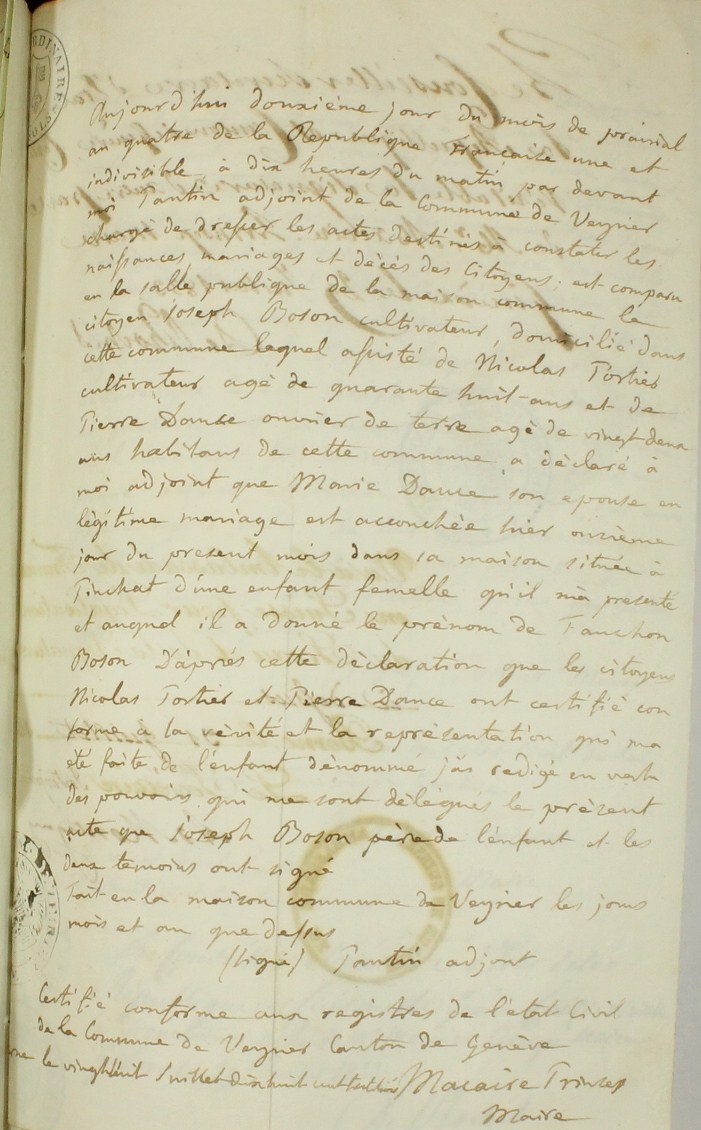 Aujourd'hui douzième jour du mois de prairial
an quatre de la République Française une et
indivisible à dix heures du matin par devant
moi Tantin adjoint de la Commune de Veyrier
chargé de dresser les actes destinés à constater les
naissances, mariages et décès des Citoyens; est comparu
en la salle publique de la maison commune le
citoyen Joseph Boson cultivateur, domicilié dans
cette commune lequel assisté de Nicolas Fortier
cultivateur agé de quarante huit ans et de
Pierre Dance ouvrier de terre agé de vingt deux
ans habitans de cette commune a déclaré à
moi adjoint que Marie Dance son epouse en
légitime mariage est accouchée hier onzième
jour du present mois dans sa maison située à
Pinchat d'une enfant femelle qu'il m'a presenté
et auquel il a donné le prénom de Fanchon
Boson D'après cette déclaration que les citoyens
Nicolas Fortier et Pierre Dance ont certifié con
forme à la vérité et la représentation qui m'a
été faite de l'enfant dénommé j'ai redigé en vertu
des pouvoirs qui me sont délégués le présent
acte que Joseph Boson père de l'enfant et les
deux temoins ont signé
Fait en la maison commune de Veyrier les jours
mois et an que dessus
(signé) Tantin adjoint
Certifié conforme aux registres de l'état Civil
de la Commune de Veyrier Canton de Genève
le vingt huit Juillet dix huit cent Macaire Prinses
Maire